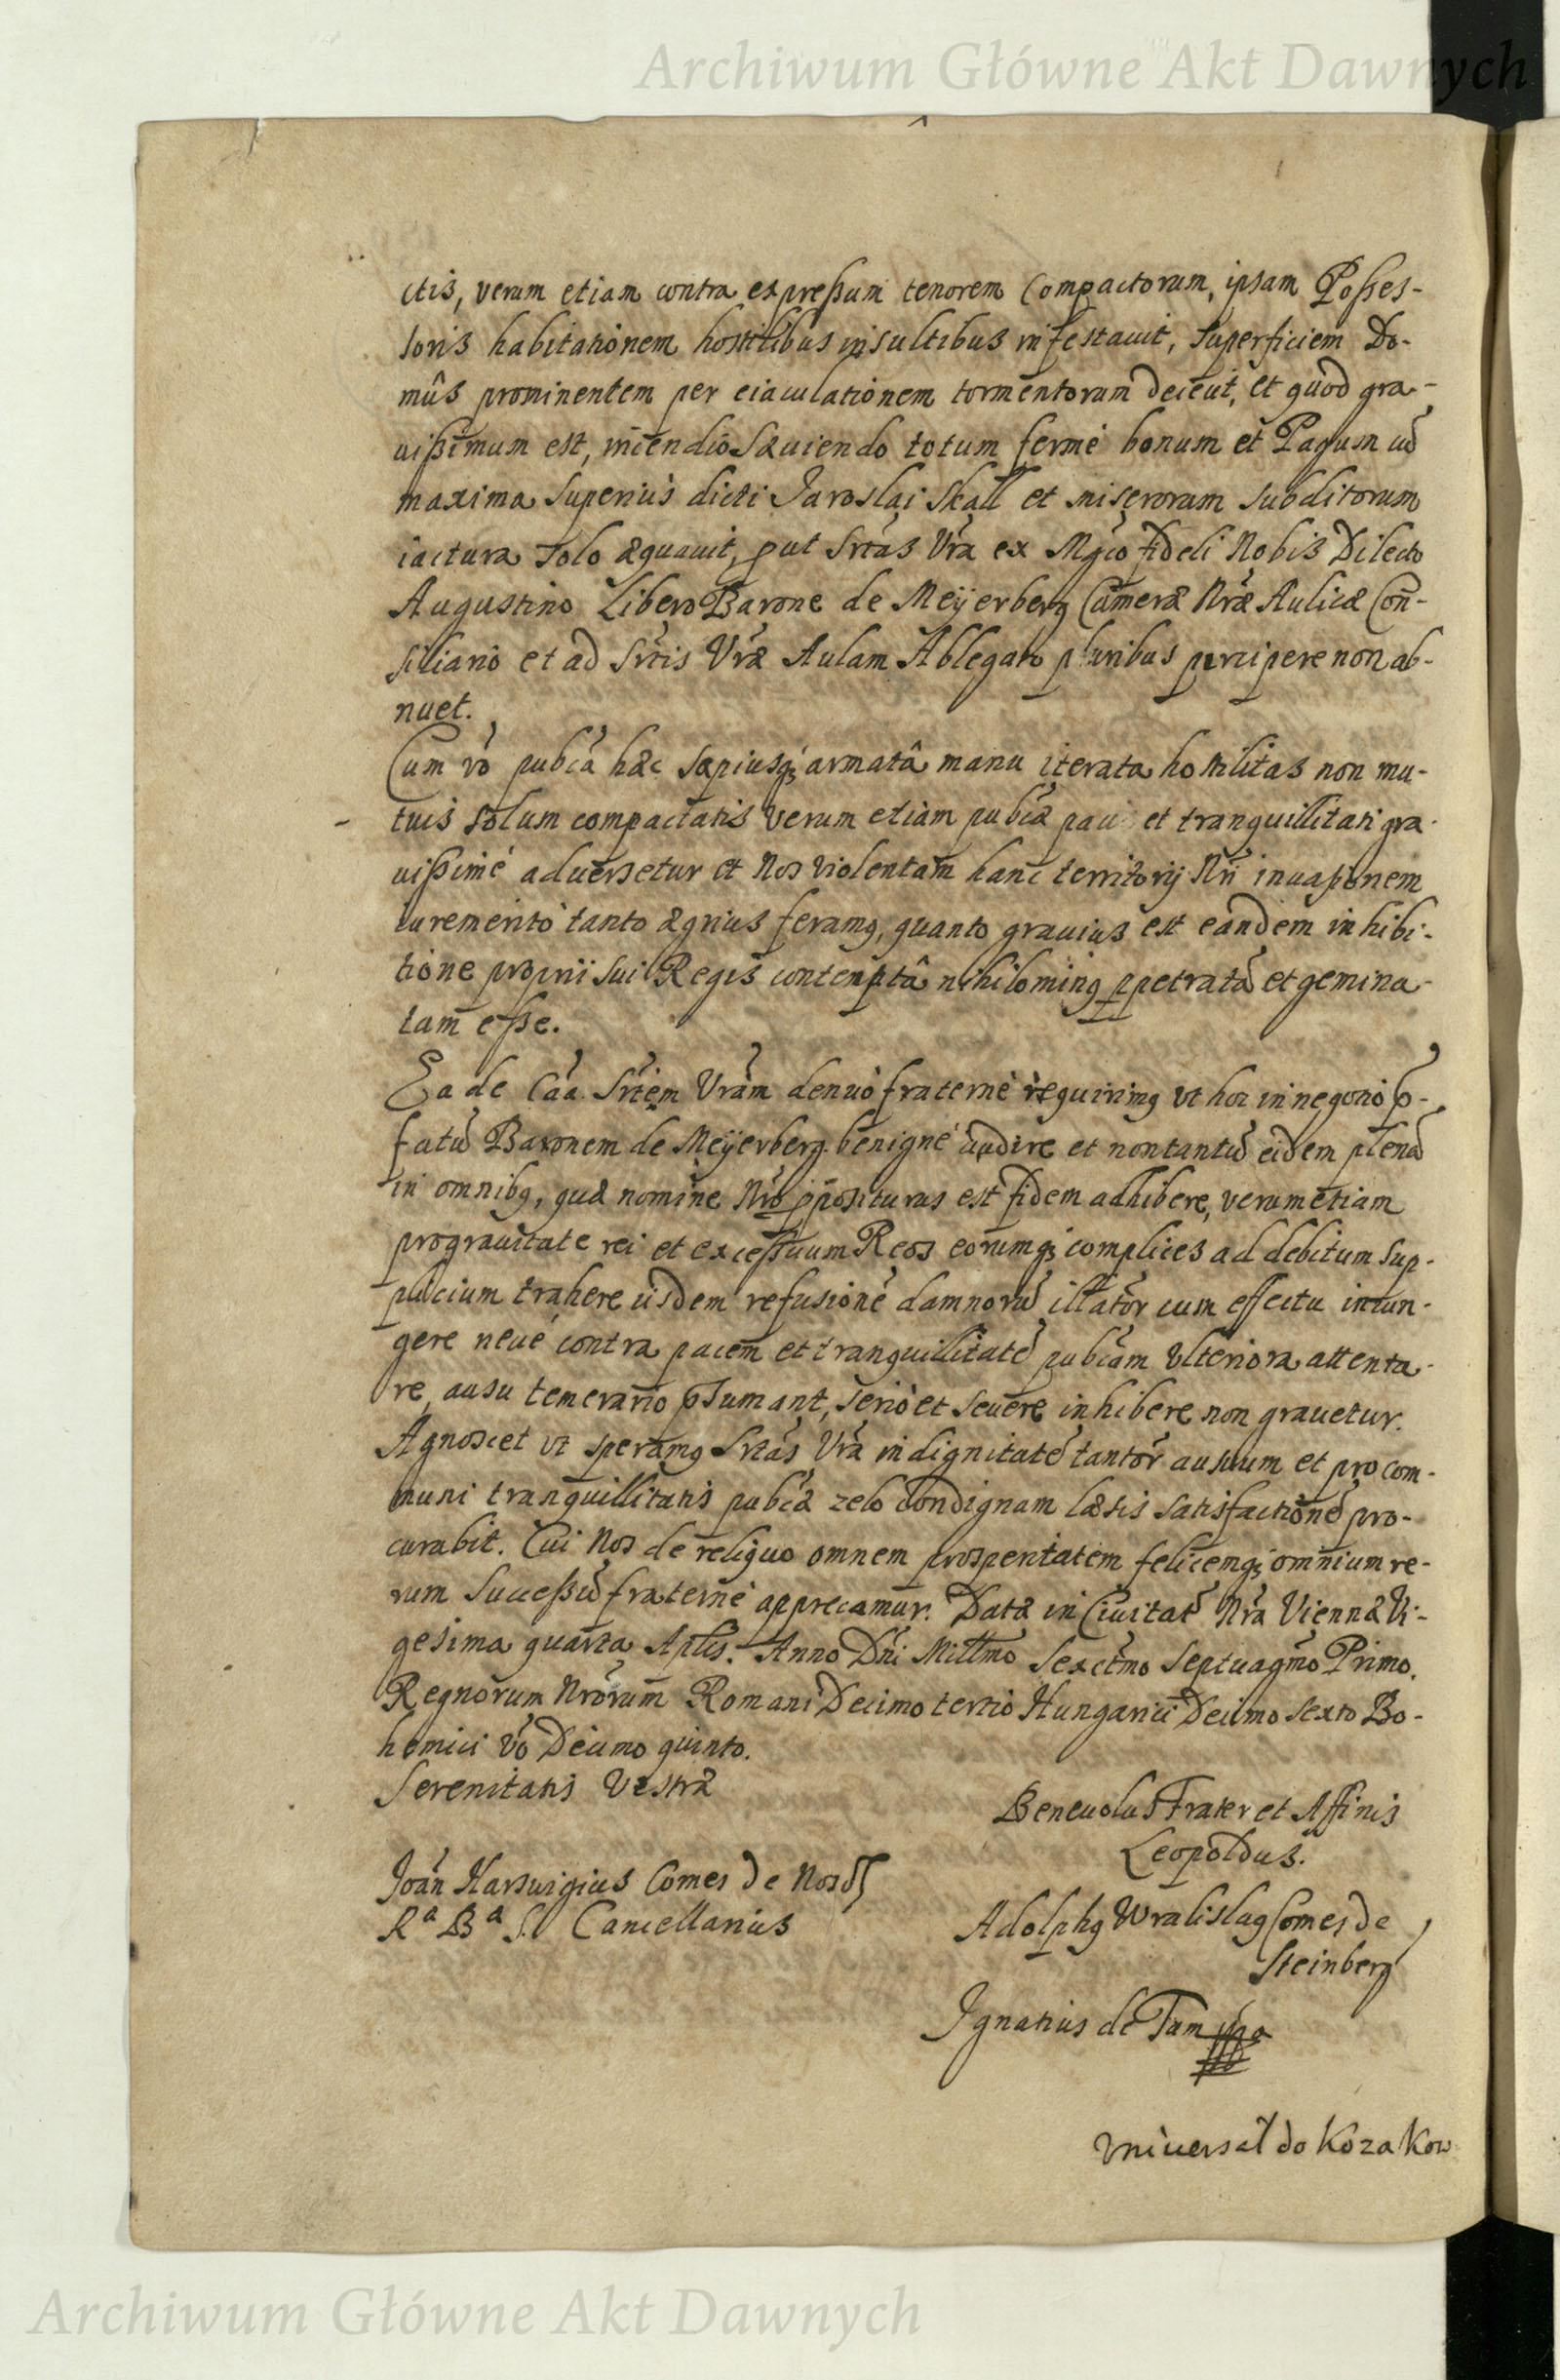 Archiwum Główne Akt Dawnych
ctis, verum etiam contra expreßum tenorem Compactorum, ipsam Poßes-
soris habitationem hostilibus insultibus infestauit, superficiem Do-
mûs prominentem per eiaculationem tormentorum deiecit, et quod gra-
uißimum est, incendiô sæuiendo totum fermè bonum et Pagum cū
maxima superius dicti Jaroslai Skall et miserorum subditorum
iactura solo æquauit, put Srtas Vrã ex Mgco fideli Nobis Dilecto
Augustino Libero Barone de Meÿerberg Cameræ Nræ Aulicæ Con-
siliario et ad Srtis Vræ Aulam Ablegato pluribus percipere non ab-
nuet.
Cum vò pubca hæc sæpiusq armatâ manu iterata hostilitas non mu-
tuis solum compactatis verum etiam pubcæ paci et tranquillitati gra-
uißimè aduersetur et Nos violentam hanc territorij Nri inuaßionem
iure meritò tanto ægrius feramq, quanto grauius est eandem inhibi-
tione proprii sui Regis contemptâ nihilominq ppetratā et gemina-
tam eße.
Ea de Caa Srtem Vram denuò fraternè requirimq vt hoc in negotio p-
fatū Baronem de Meÿerberg benignè audire et non tantū eidem plenā
in omnibq, quæ nomine Nro ppositurus est fidem adhibere, verum etiam
pro grauitate rei et exceßuum Reos eorumq complices ad debitum sup-
plicium trahere iisdem refusionē damnorū illator cum effectu iniun-
gere neuè contra pacem et tranquillitatē pubcam vlteriora attenta-
re, ausu temerario psumant, seriò et seuere inhibere non grauetur.
Agnoscet vt speramq Srtas Vra indignitatē tantor ausuum et pro com-
muni tranquillitatis pubcæ zelo condignam læsis satisfactionē pro-
curabit. Cui Nos de reliquo omnem prosperitatem felicemq omnium re-
rum succeßū fraternè apprecamur. Datæ in Ciuitate Nra Viennæ Vi-
gesima quarta Aplis. Anno Dni Millmo Sexctmo Septuagmo Primo.
Regnorum Nrorum Romani Decimo tertio Hungarici Decimo sexto Bo-
hemici vò Decimo quinto.
Serenitatis Vestræ
Beneuolus Frater et Affinis
Leopoldus.
Joan Harwigius Comes de Nosti
Ra Ba S. Cancellarius
Adolphq Wratislaq Comes de
Steinberg
Ignatius de Tam
Vniuersał do Kozakow
Archiwum Główne Akt Dawnych